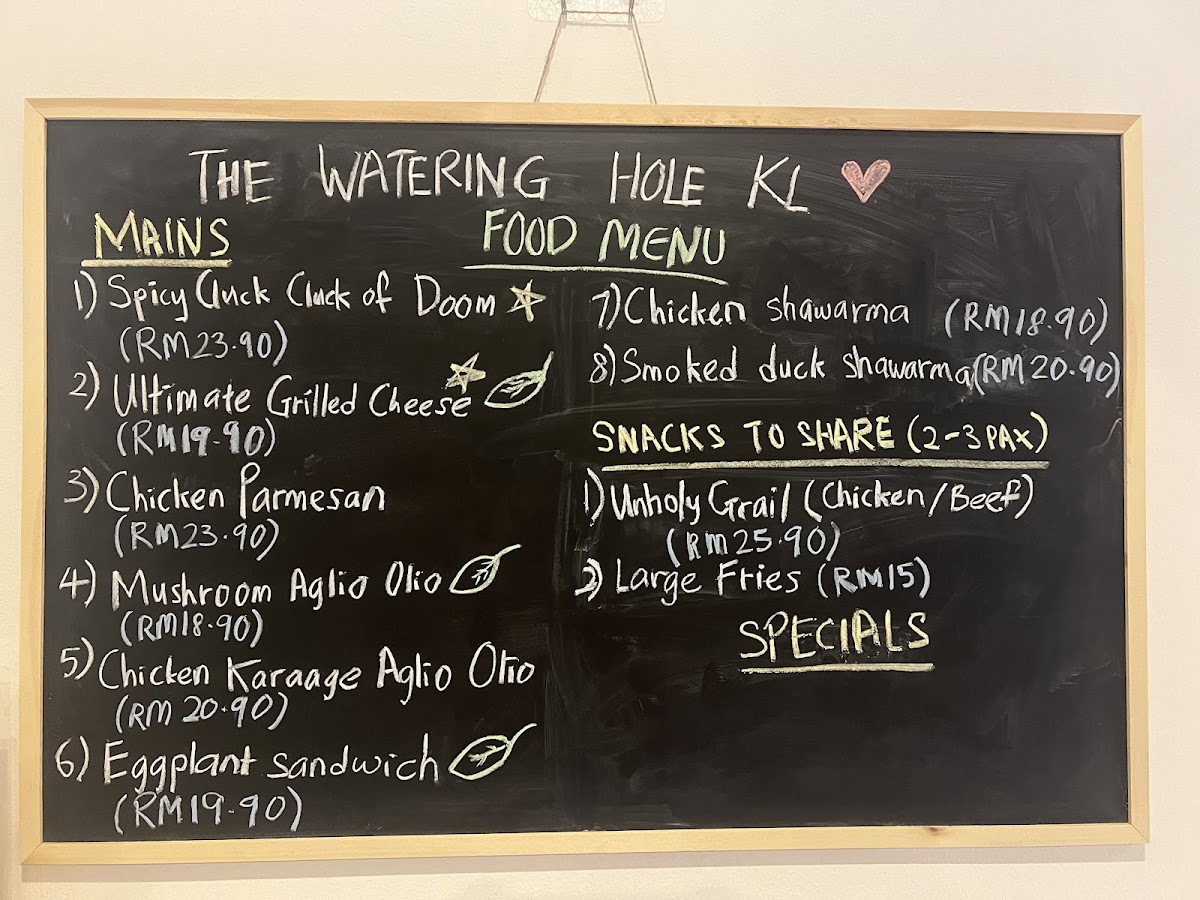 THE WATERING HOLE KL
FOOD MENU
MAINS
1) Spicy Cluck Cluck of Doom
(RM23.90)
2) Ultimate Grilled Cheese
(RM19.90)
3) Chicken Parmesan
(RM23.90)
4) Mushroom Aglio Olio
(RM18.90)
5) Chicken Karaage Aglio Olio
(RM 20.90)
6) Eggplant sandwich
(RM19.90)
7) Chicken shawarma (RM18.90)
8) Smoked duck shawarma (RM 20.90)
SNACKS TO SHARE (2-3 PAX)
1) Unholy Grail (Chicken/Beef)
(RM25.90)
2) Large Fries (RM15)
SPECIALS